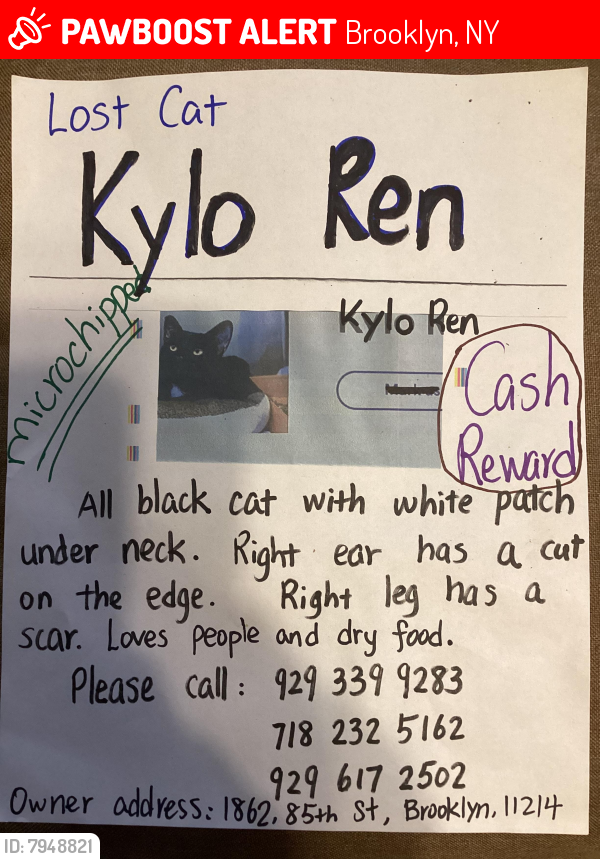 PAWBOOST ALERT Brooklyn, NY
Lost Cat
Kylo Ren
microchipped
Kylo Ren
Cash
Reward
All black cat with white patch
under neck. Right ear has a cut
on the edge. Right leg has a
scar. Loves people and dry food.
Please call: 929 339 9283
718 232 5162
929 617 2502
Owner address: 1862, 85th St, Brooklyn, 11214
ID: 7948821